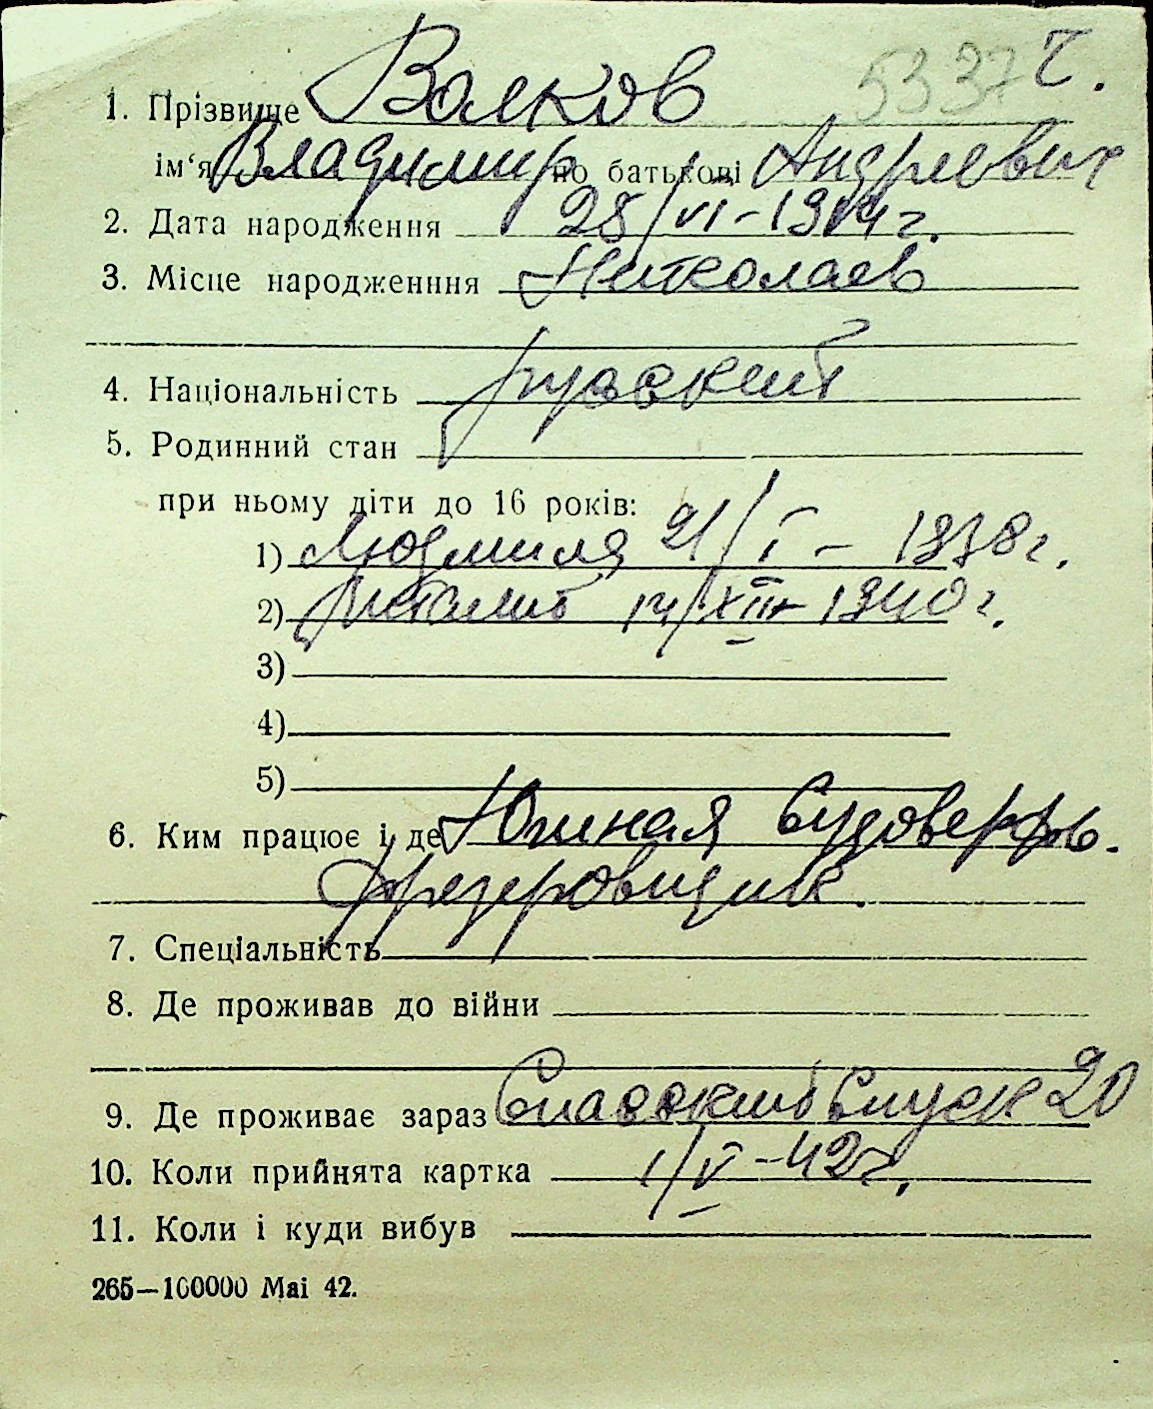 5337 г.
1. Прізвище Волков
ім‘я Владимир по батькові Андреевич
2. Дата народження 28/VI - 1914 г.
3. Місце народженння Николаев
4. Національність русский
5. Родинний стан
при ньому діти до 16 років:
1) Людмила 21/I - 1938 г.
2) Виталий 14/XII - 1940 г.
3)
4)
5)
6. Ким працює і де Южная Судоверфь.
фрезеровщик.
7. Спеціальність
8. Де проживав до війни
9. Де проживає зараз Спасский Спуск 20
10. Коли прийнята картка 1/V - 42 г.
11. Коли і куди вибув
265—100000 Mai 42.